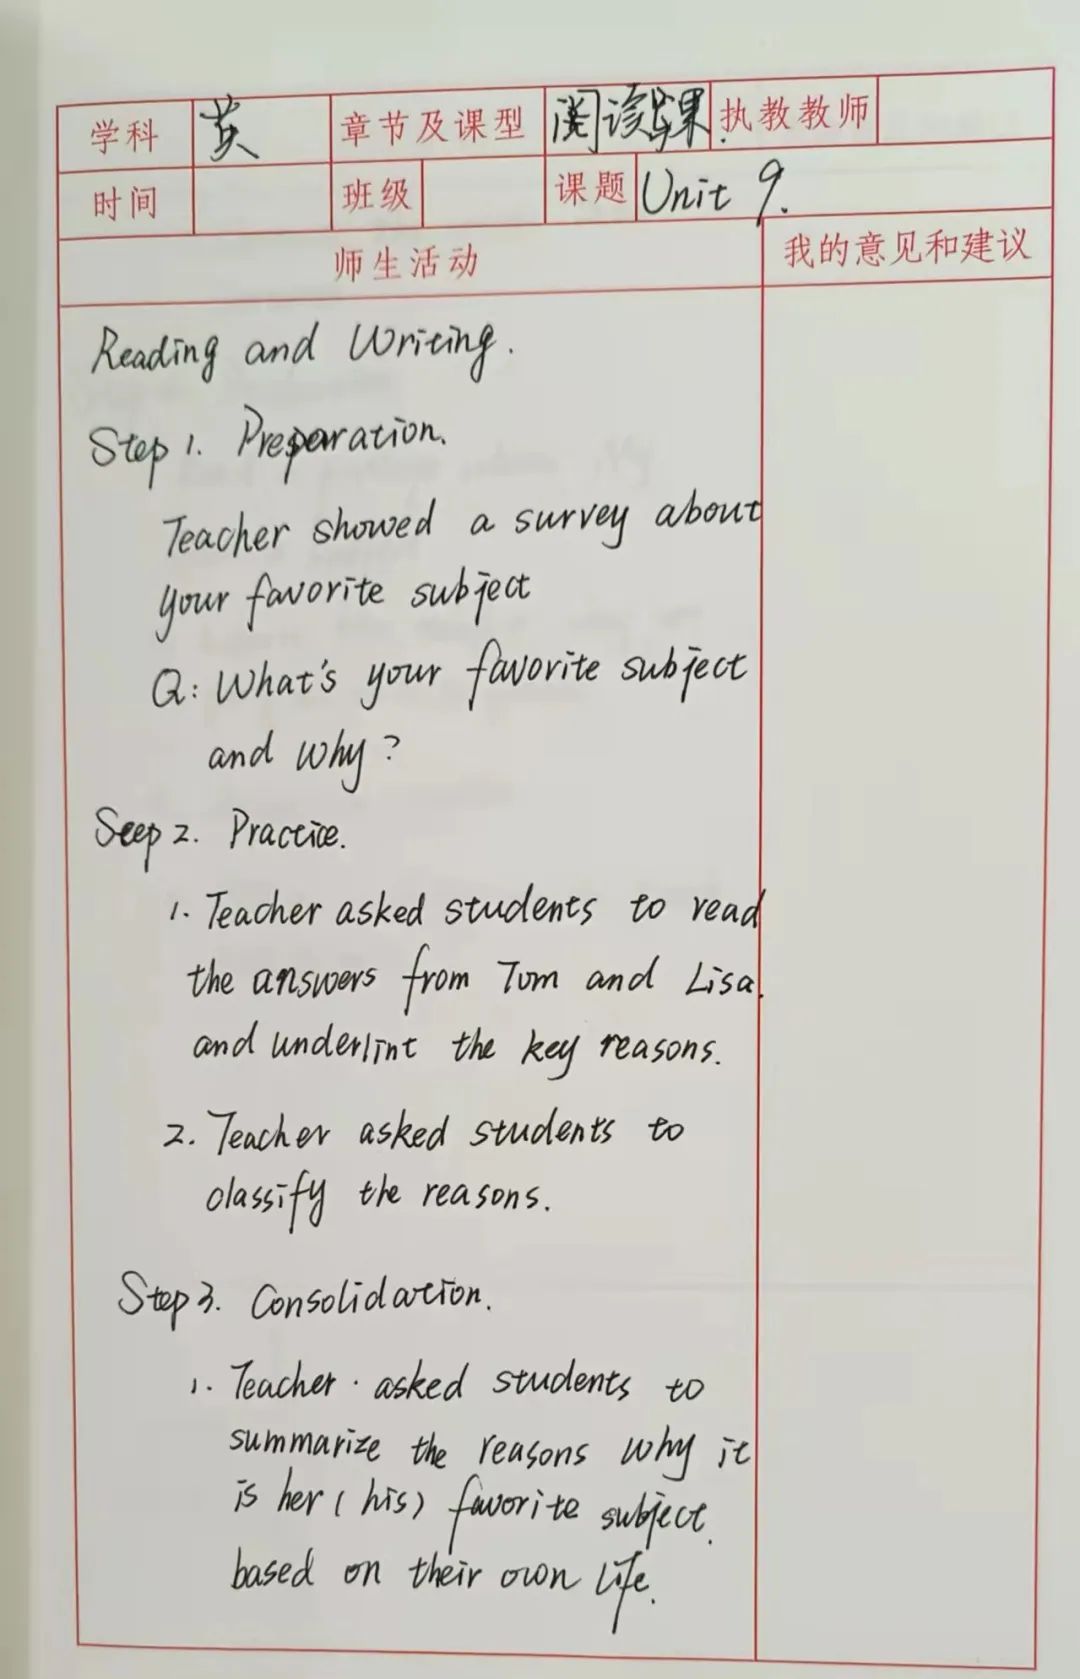 学科 英 章节及课型 阅读课. 执教教师
时间 班级 课题 Unit 9.
师生活动 我的意见和建议
Reading and Writing.
Step 1. Preparation.
Teacher showed a survey about
your favorite subject
Q: What's your favorite subject
and why?
Step 2. Practice.
1. Teacher asked students to read
the answers from Tom and Lisa.
and underlint the key reasons.
2. Teacher asked students to
classify the reasons.
Step 3. Consolidation.
1. Teacher. asked students to
summarize the reasons why it
is her (his) favorite subject.
based on their own life.